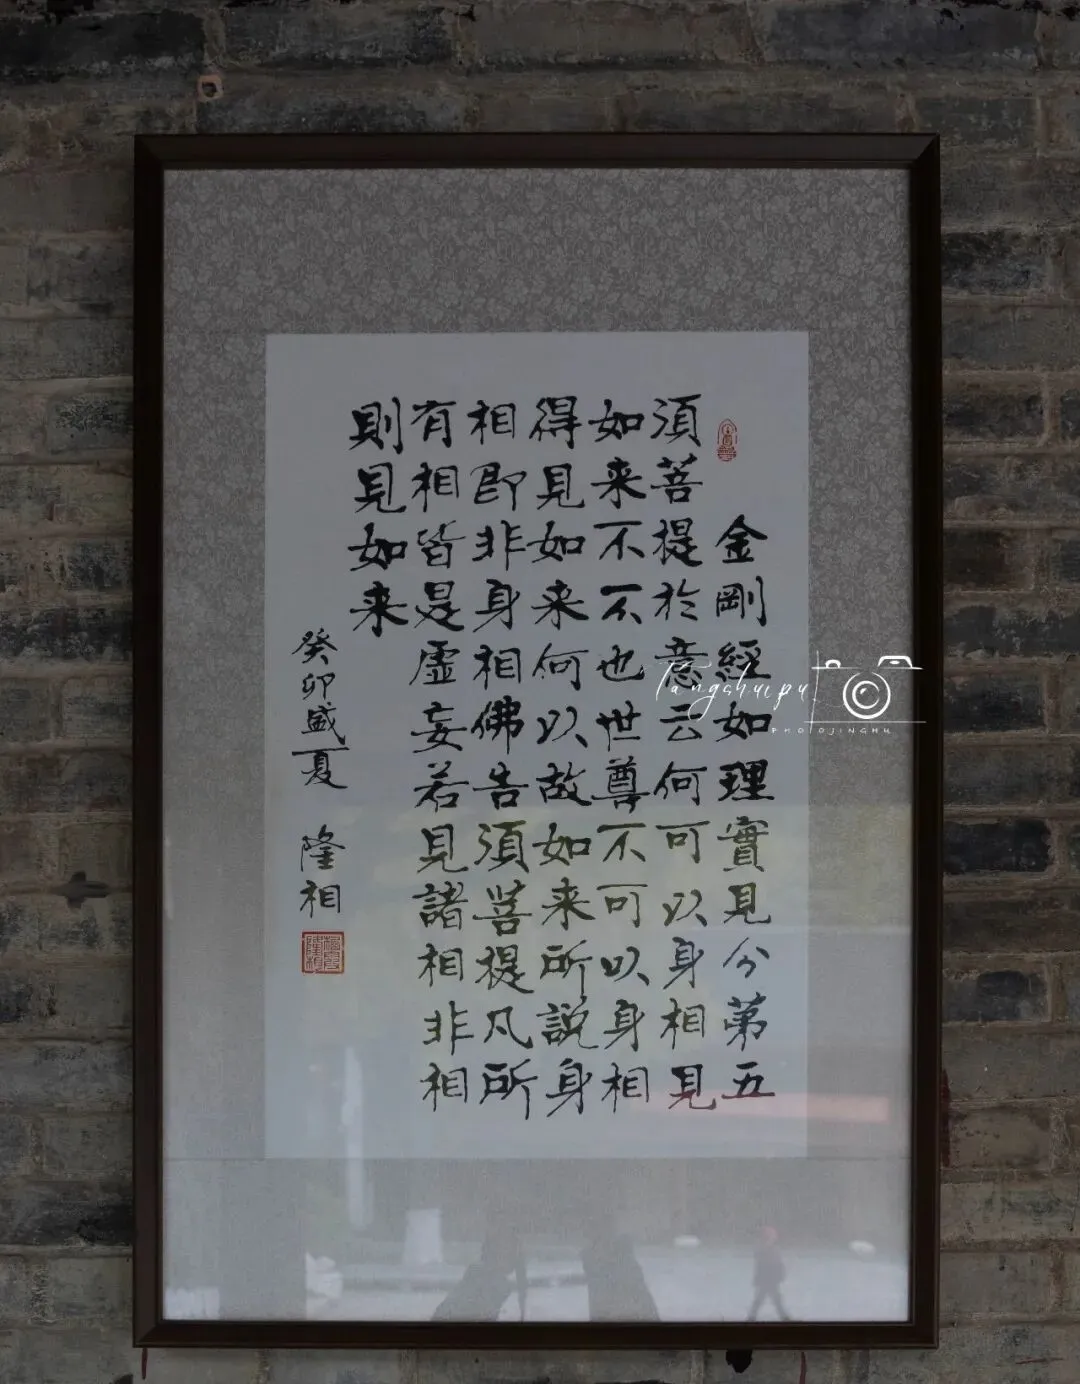 金剛經如理實見分第五
須菩提於意云何可以身相見
如来不不也世尊不可以身相
得見如来何以故如来所說身
相即非身相佛告須菩提凡所
有相皆是虛妄若見諸相非相
則見如来
癸卯盛夏 隆相
Tangshuipu
PHOTOJINGHU